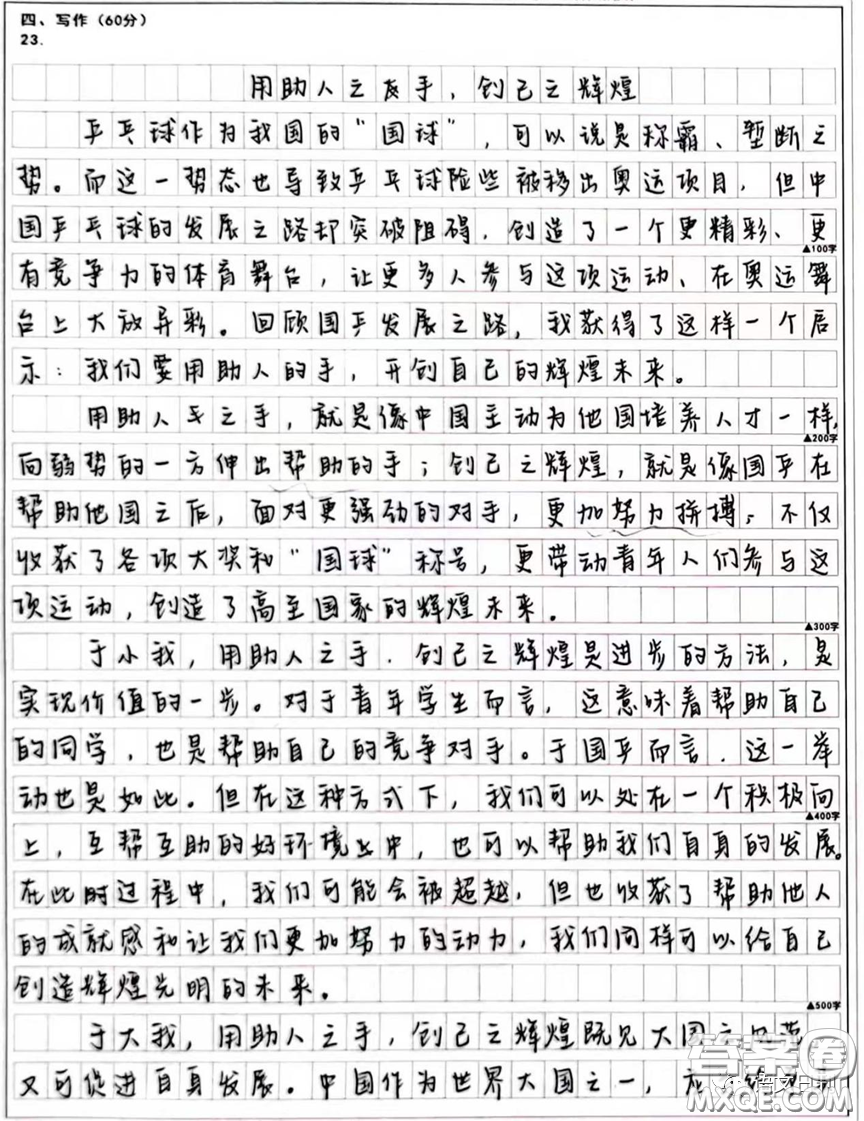 四、写作（60分）
23.
用助人之友手，创己之辉煌
乒乓球作为我国的“国球”，可以说是称霸、垄断之
势。而这一势态也导致乒乓球险些被移出奥运项目，但中
国乒乓球的发展之路却突破阻碍，创造了一个更精彩、更
▲100字
有竞争力的体育舞台，让更多人参与这项运动、在奥运舞
台上大放异彩。回顾国乒发展之路，我获得了这样一个启
示：我们要用助人的手，开创自己的辉煌未来。
用助人之手，就是像中国主动为他国培养人才一样，
▲200字
向弱势的一方伸出帮助的手；创己之辉煌，就是像国乒在
帮助他国之后，面对更强劲的对手，更加努力拼搏；不仅
收获了各项大奖和“国球”称号，更带动青年人们参与这
项运动，创造了高至国家的辉煌未来。
▲300字
于小我，用助人之手．创己之辉煌是进步的方法，是
实现价值的一步。对于青年学生而言，这意味着帮助自己
的同学，也是帮助自己的竞争对手。于国乒而言．这一举
动也是如此。但在这种方式下，我们可以处在一个积极向
▲400字
上，互帮互助的好环境之中，也可以帮助我们自身的发展。
在此时过程中，我们可能会被超越，但也收获了帮助他人
的成就感和让我们更加努力的动力，我们同样可以给自己
创造辉煌光明的未来。
▲500字
于大我，用助人之手，创己之辉煌既见大国之风范
又可促进自身发展。中国作为世界大国之一，
答案圈
MXQE.COM